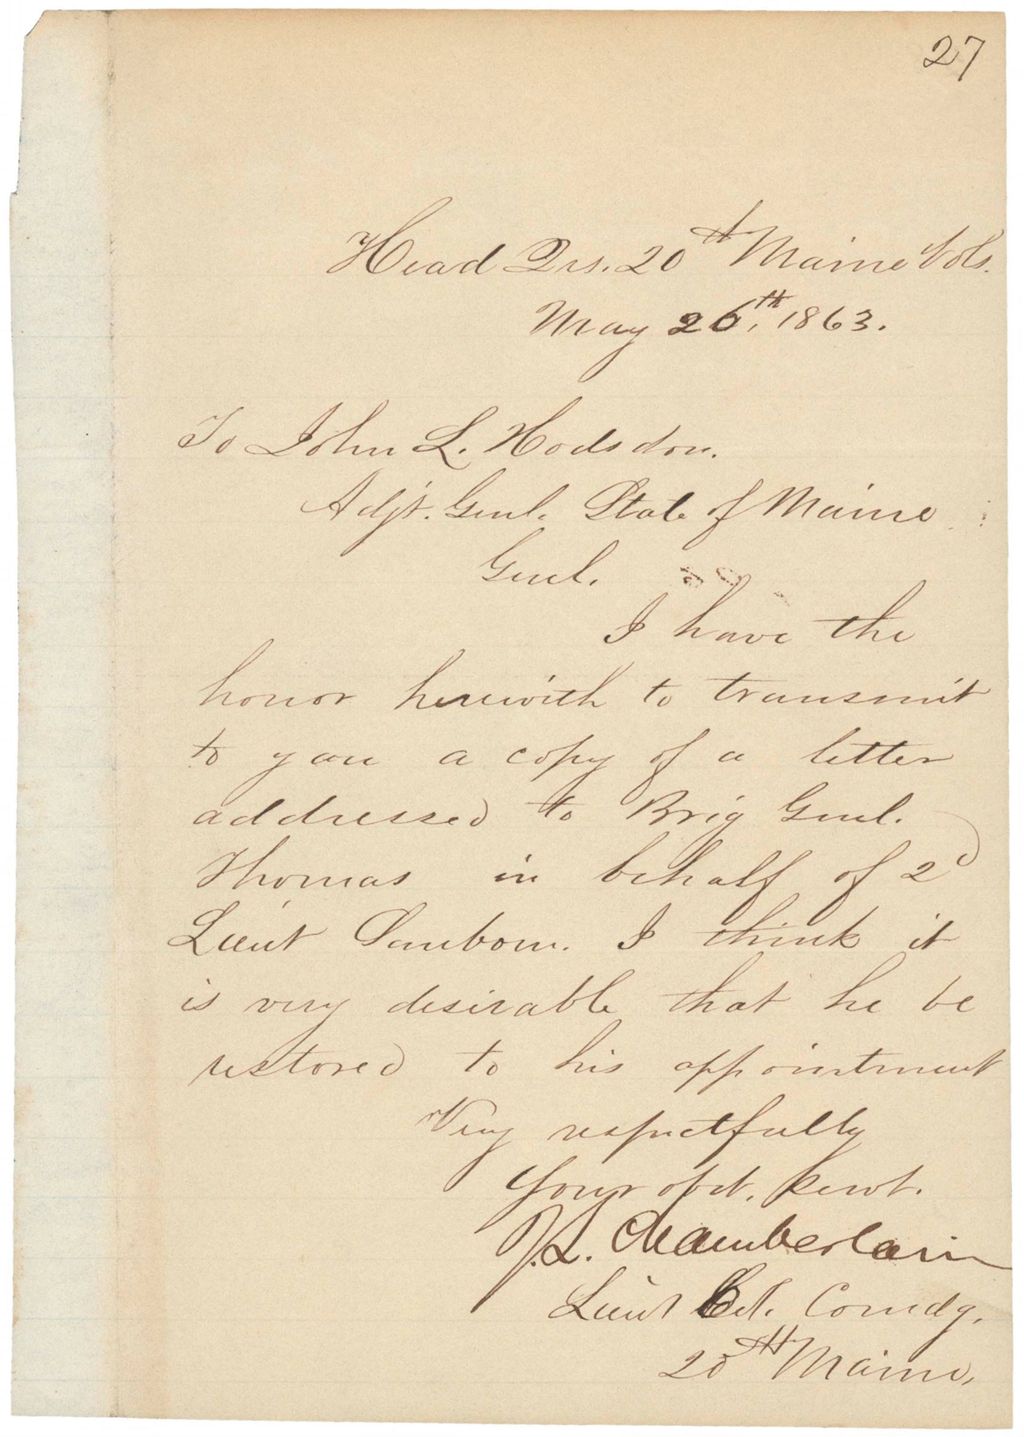 27
Head Qrs. 20th Maine Vols.
May 26th, 1863.
To John L. Hodsdon.
Adjt. Genl. State of Maine
Genl.
I have the
honor herewith to transmit
to you a copy of a letter
addressed to Brig Genl.
Thomas in behalf of 2d
Lieut Sanborn. I think it
is very desirable that he be
restored to his appointment
Very respectfully
Your obdt. servt.
J. L. Chamberlain
Lieut Col. Comdg.
20th Maine.